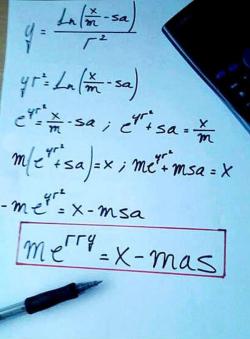 y = Ln(x/m - sa) / r²
yr² = Ln(x/m - sa)
e^yr² = x/m - sa ; e^yr² + sa = x/m
m(e^yr² + sa) = x ; me^yr² + msa = x
- me^yr² = x - msa
me^rry = x - mas